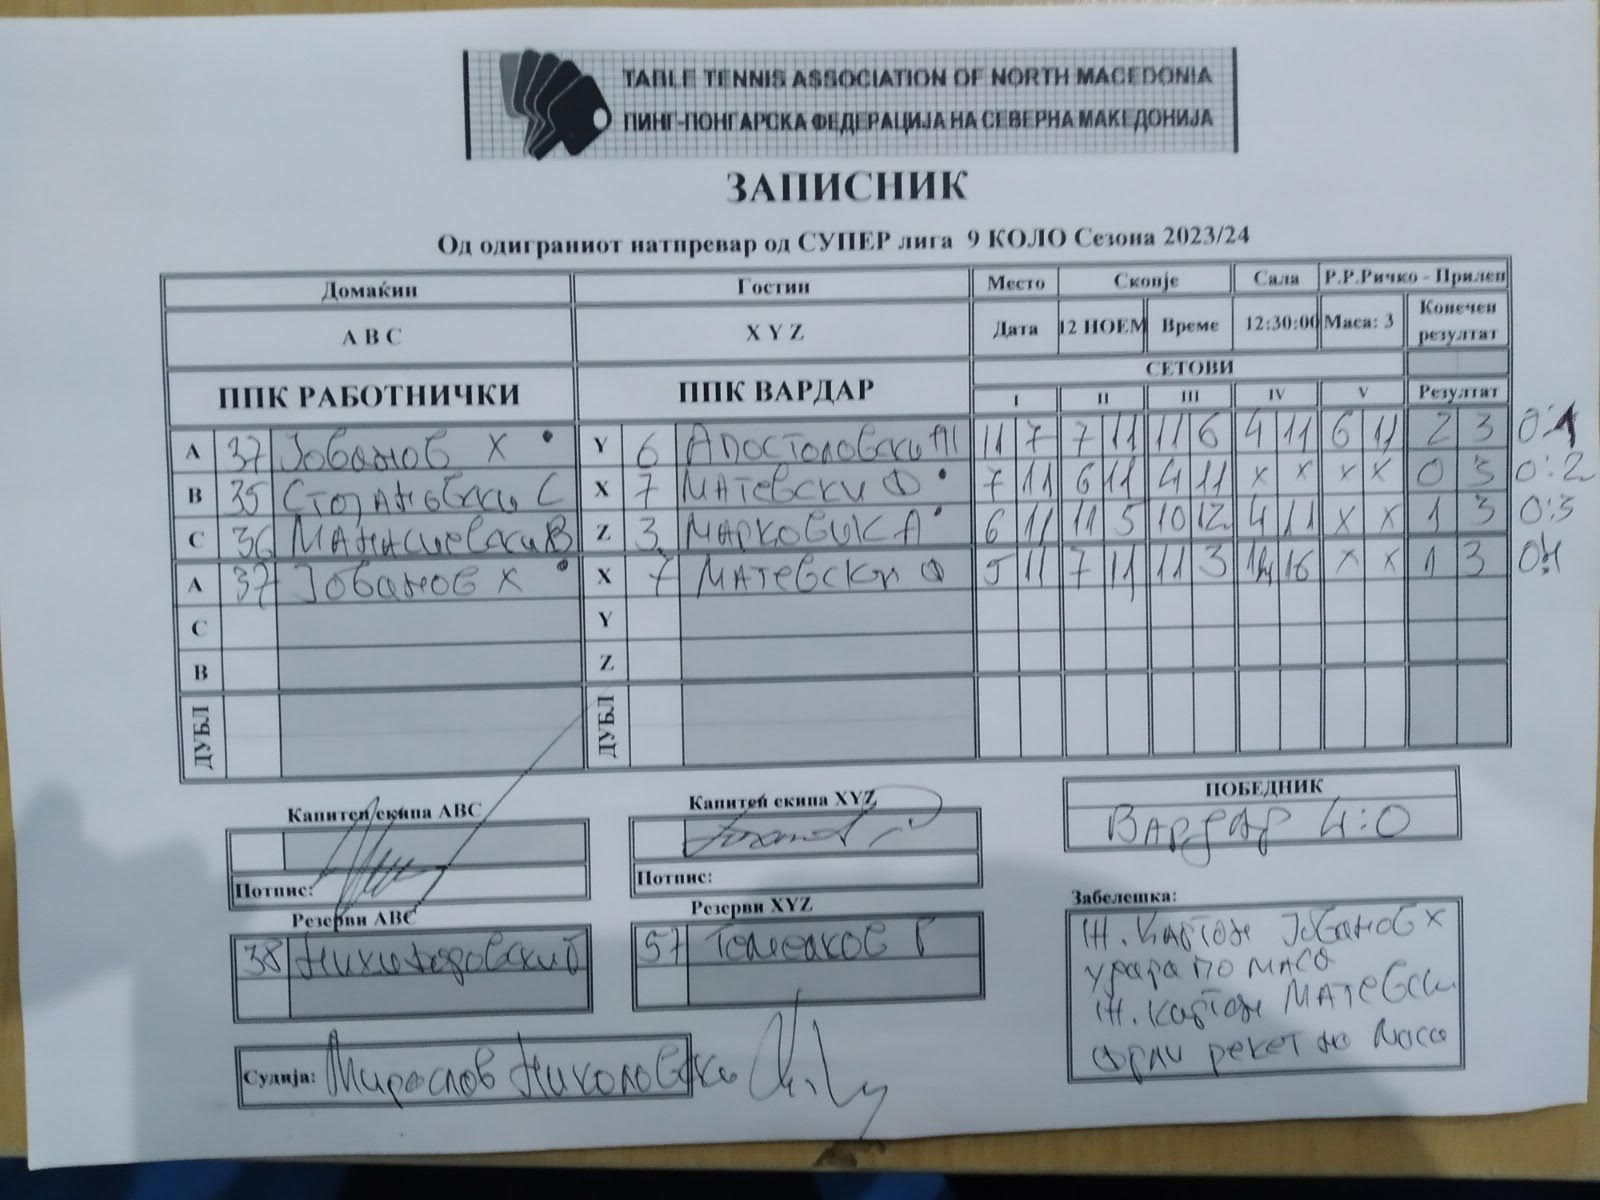 TABLE TENNIS ASSOCIATION OF NORTH MACEDONIA
ПИНГ-ПОНГАРСКА ФЕДЕРАЦИЈА НА СЕВЕРНА МАКЕДОНИЈА
ЗАПИСНИК
Од одиграниот натпревар од СУПЕР лига 9 КОЛО Сезона 2023/24
Домаќин Гостин Место Скопје Сала Р.Р.Ричко - Прилеп
А В С X Y Z Дата 12 НОЕМ Време 12:30:00 Маса: 3 Конечен резултат
ППК РАБОТНИЧКИ ППК ВАРДАР СЕТОВИ
I II III IV V Резултат
A 37 Јованов Х Y 6 Апостоловски 11 7 7 11 11 6 4 11 6 11 2 3 0:1
B 35 Стојановски С X 7 Матевски Ф 7 11 6 11 4 11 х х х х 0 3 0:2
C 36 Манасиевски В Z 3 Марковиќ А 6 11 11 5 10 12 4 11 х х 1 3 0:3
A 37 Јованов Х X 7 Матевски Ф 5 11 7 11 11 3 14 16 х х 1 3 0:4
C Y
B Z
ДУБЛ ДУБЛ
Капитен екипа ABC Капитен екипа XYZ ПОБЕДНИК
Вардар 4:0
Потпис: Потпис:
Резерви ABC Резерви XYZ Забелешка:
38 57
Ж. Картон Јованов Х
удара по маса
Ж. картон Матевски
фрли рекет на маса
Судија: Мирослав Николовски